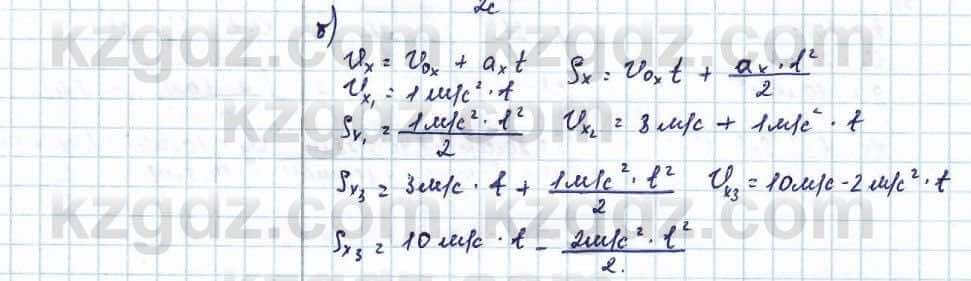 2с
б)
𝒱ₓ = 𝒱₀ₓ + aₓt    Sₓ = 𝒱₀ₓt + aₓ·t²/2
𝒱ₓ₁ = 1м/с²·t
Sₓ₁ = 1м/с²·t²/2    𝒱ₓ₂ = 3м/с + 1м/с²·t
Sₓ₃ = 3м/с·t + 1м/с²·t²/2    𝒱ₓ₃ = 10м/с - 2м/с²·t
Sₓ₃ = 10м/с·t - 2м/с²·t²/2.
kzgdz.com kzgdz.com
kzgdz.com kzgdz.com
kzgdz.com kzgdz.com